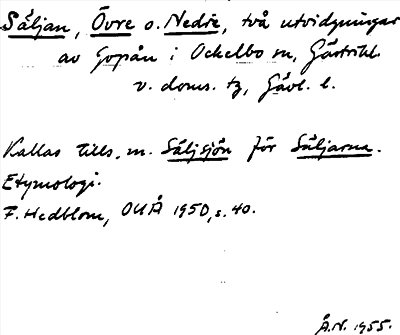 Säljan, Övre o. Nedre, två utvidgningar
av Gopån i Ockelbo sn, Gästrikl.
v. doms. tg, Gävl. l.
Kallas tills. m. Säljsjön för Säljarna.
Etymologi.
F. Hedblom, OUÅ 1950, s. 40.
Å.N. 1955.